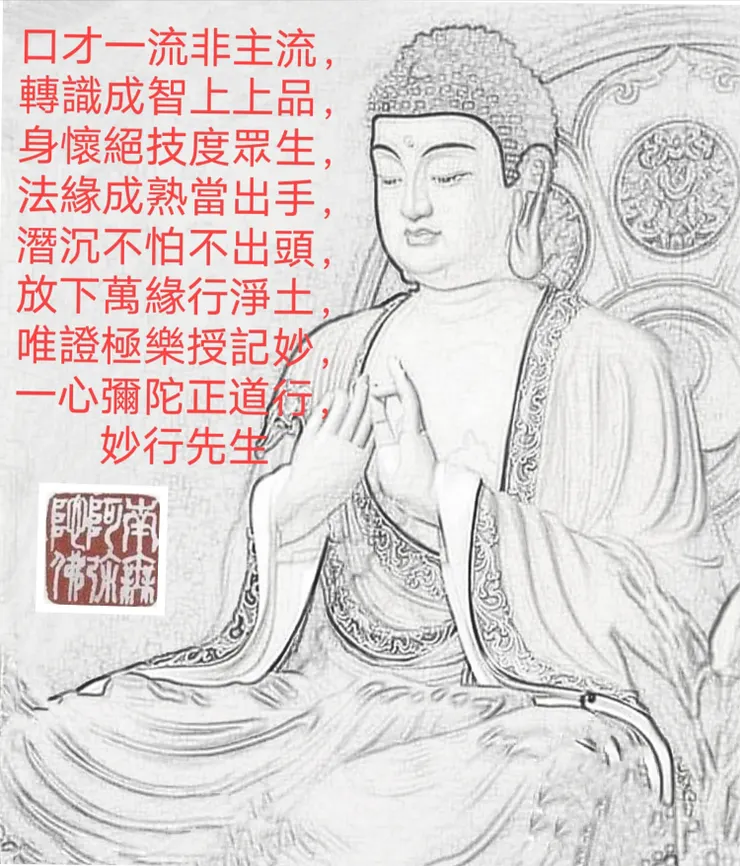 口才一流非主流，
轉識成智上上品，
身懷絕技度眾生，
法緣成熟當出手，
潛沉不怕不出頭，
放下萬緣行淨土，
唯證極樂授記妙，
一心彌陀正道行，
妙行先生
南無
阿弥
陀佛